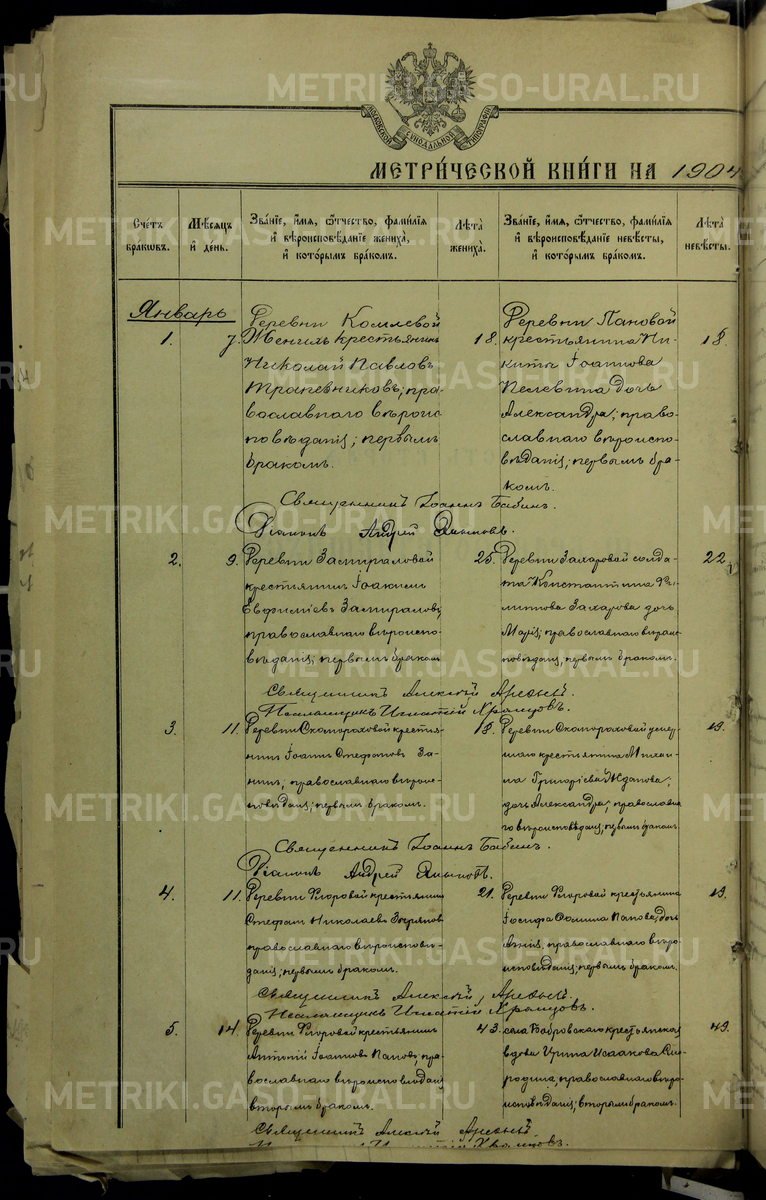 МОСКОВСКОЙ СѴНОДАЛЬНОЙ ТИПОГРАФІИ
МЕТРИ́ЧЕСКОЙ КНИ́ГИ НА 1904
Сче́тъ бракѡвъ.
Мѣ́сяцъ и҆ де́нь.
Зва́нїе, и҆́мя, ѻ҆́тчество, фами́лїя и҆ вѣроисповѣ́данїе жениха̀, и҆ кото́рымъ бра́комъ.
Лѣ́та жениха̀.
Зва́нїе, и҆́мя, ѻ҆́тчество, фами́лїя и҆ вѣроисповѣ́данїе невѣ́сты, и҆ кото́рымъ бра́комъ.
Лѣ́та невѣ́сты.
Январь
1.
7.
Деревни Комлевой
крестьянинъ
Николай Павловъ
Трапезниковъ; пра-
вославнаго вѣроис-
повѣданія; первымъ
бракомъ.
18.
Деревни Пановой
крестьянина Ни-
киты Іоаннова
Пелевина дочь
Александра; право-
славнаго вѣроиспо-
вѣданія; первымъ бра-
комъ.
18.
Священникъ Іоаннъ Бабинъ.
Діаконъ Андрей
2.
9.
Деревни Замираловой
крестьянинъ Іоакимъ
Евфиміевъ Замираловъ,
православнаго вѣроиспо-
вѣданія; первымъ бракомъ
25.
Деревни Захаровой солда-
та Константина Фи-
липпова Захарова дочь
Марія; православнаго вѣроис-
повѣданія, первымъ бракомъ.
22.
Священникъ Алексій
Псаломщикъ Игнатій Храмцовъ.
3.
11.
Деревни Скомороховой крестья-
нинъ Іоаннъ Стефановъ За-
нинъ; православнаго вѣроис-
повѣданія; первымъ бракомъ.
18.
Деревни Скомороховой умер-
шаго крестьянина Михаи-
ла Григоріева Жданова,
дочь Александра, православна-
го вѣроисповѣданія, первымъ бракомъ.
19.
Священникъ Іоаннъ Бабинъ.
Діаконъ Андрей
4.
11.
Деревни Фроровой крестьянинъ
Стефанъ Николаевъ Зырянов
православнаго вѣроисповѣ-
данія; первымъ бракомъ.
21.
Деревни Фроровой крестьянина
Іосифа Ѳомина Панова, дочь
Анна, православнаго вѣро-
исповѣданія; первымъ бракомъ.
19.
Священникъ Алексій
Псаломщикъ Игнатій Храмцовъ.
5.
14.
Деревни Фроровой крестьянинъ
Антоній Іоанновъ Пановъ, пра-
вославнаго вѣроисповѣдан.
вторымъ бракомъ.
43.
села Бобровскаго крестьянская
вдова Ирина Исаакова
православнаго вѣро-
исповѣданія; вторымъ бракомъ.
49.
Священникъ Алексій
METRIKI.GASO-URAL.RU